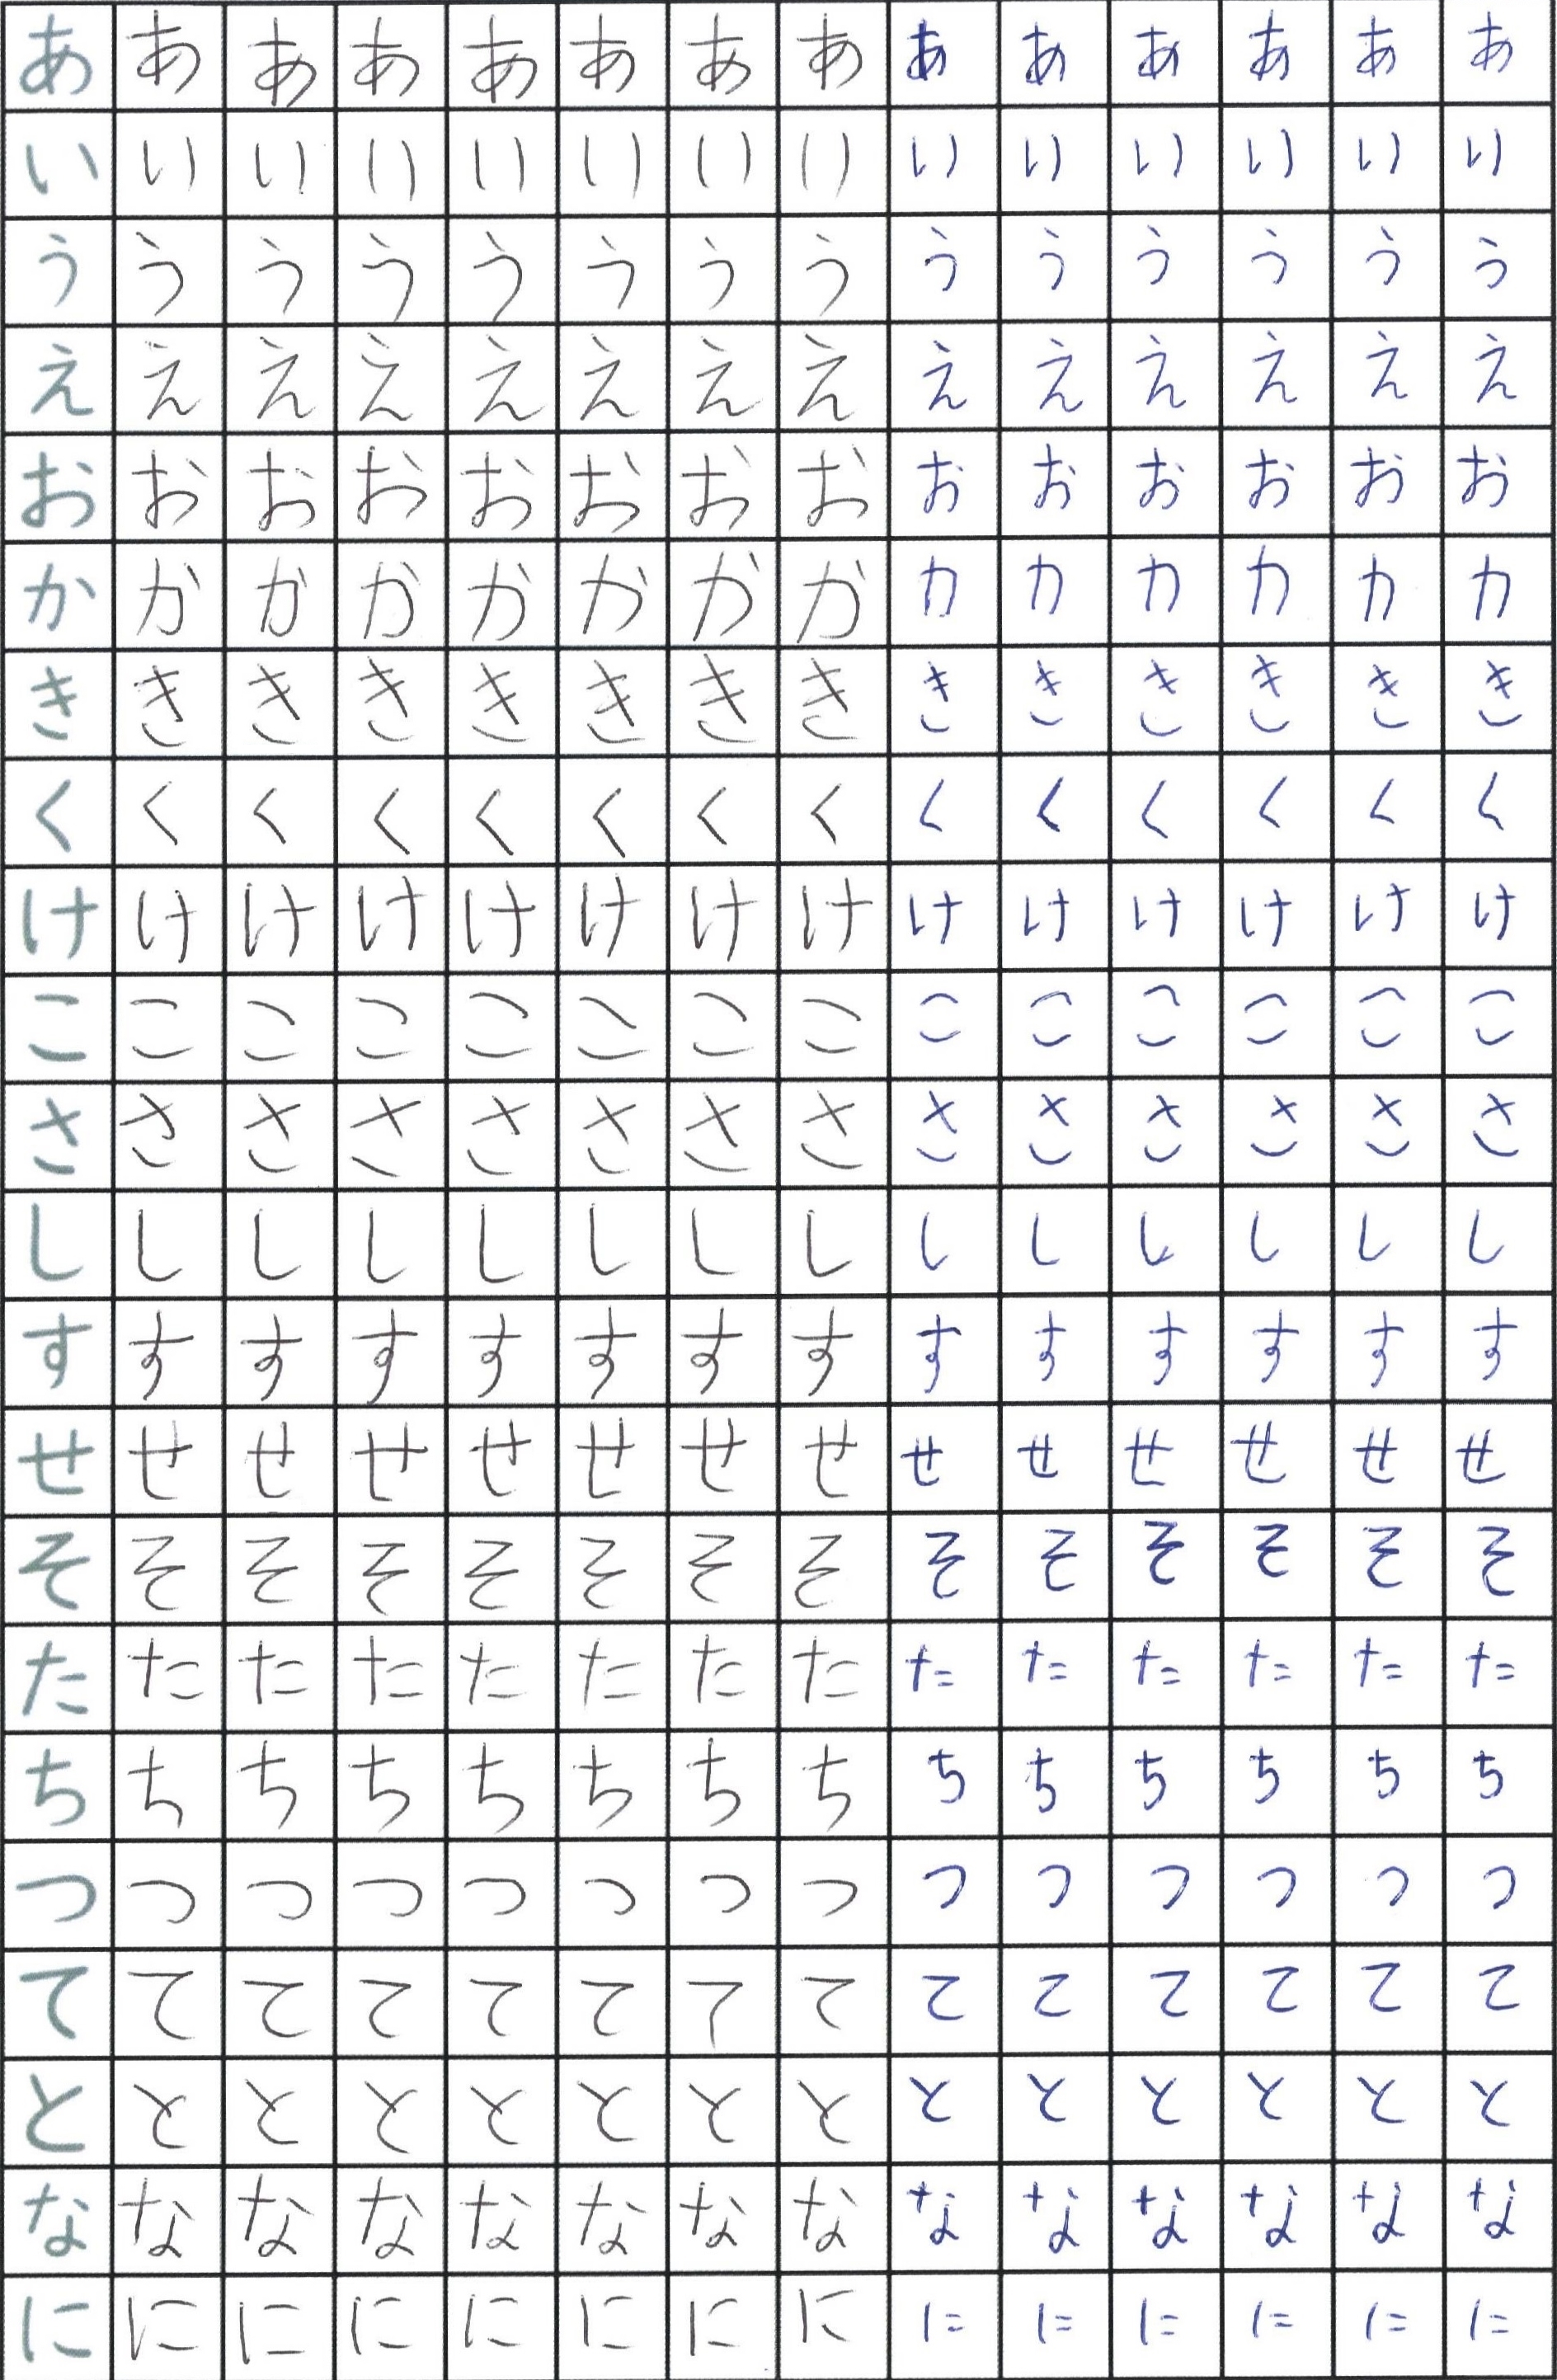 あ あ あ あ あ あ あ あ あ あ あ あ あ あ
い い い い い い い い い い い い い い
う う う う う う う う う う う う う う
え え え え え え え え え え え え え え
お お お お お お お お お お お お お お
か か か か か か か か カ カ カ カ カ カ
き き き き き き き き き き き き き き
く く く く く く く く く く く く く く
け け け け け け け け け け け け け け
こ こ こ こ こ こ こ こ こ こ こ こ こ こ
さ さ さ さ さ さ さ さ さ さ さ さ さ さ
し し し し し し し し し し し し し し
す す す す す す す す す す す す す す
せ せ せ せ せ せ せ せ せ せ せ せ せ せ
そ そ そ そ そ そ そ そ そ そ そ そ そ そ
た た た た た た た た た た た た た た
ち ち ち ち ち ち ち ち ち ち ち ち ち ち
つ つ つ つ つ つ つ つ つ つ つ つ つ つ
て て て て て て て て て て て て て て
と と と と と と と と と と と と と と
な な な な な な な な な な な な な な
に に に に に に に に に に に に に に